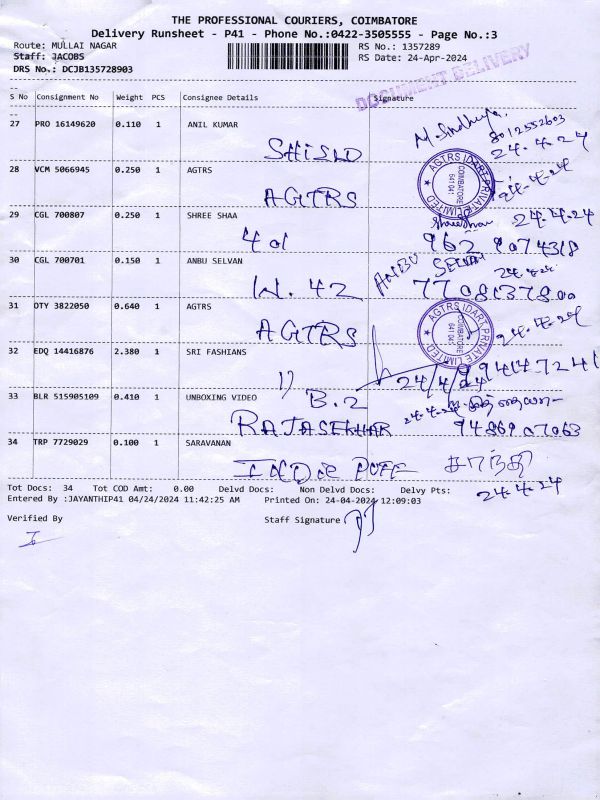 THE PROFESSIONAL COURIERS, COIMBATORE
Delivery Runsheet - P41 - Phone No.:0422-3505555 - Page No.:3
Route: MULLAI NAGAR
Staff: JACOBS
DRS No.: DCJB135728903
RS No.: 1357289
RS Date: 24-Apr-2024
DOCUMENT DELIVERY
S No Consignment No Weight PCS Consignee Details Signature
27 PRO 16149620 0.110 1 ANIL KUMAR
M. Sindhuja
8012552603
24.4.24
28 VCM 5066945 0.250 1 AGTRS
AGTRS
AGTRS IDART PRIVATE LIMITED
COIMBATORE
641 041
24.4.24
29 CGL 700807 0.250 1 SHREE SHAA
401
24.4.24
962 9074318
30 CGL 700701 0.150 1 ANBU SELVAN
ANBU SELVAN
24.4.24
31 OTY 3822050 0.640 1 AGTRS
AGTRS
AGTRS IDART PRIVATE LIMITED
COIMBATORE
24.4.24
32 EDQ 14416876 2.380 1 SRI FASHIANS
24/4/24
33 BLR 515905109 0.410 1 UNBOXING VIDEO
B.2
24.4.24
RAJASEKHAR
34 TRP 7729029 0.100 1 SARAVANAN
சாந்தி
24.4.24
Tot Docs: 34 Tot COD Amt: 0.00 Delvd Docs: Non Delvd Docs: Delvy Pts:
Entered By :JAYANTHIP41 04/24/2024 11:42:25 AM Printed On: 24-04-2024 12:09:03
Verified By
Staff Signature